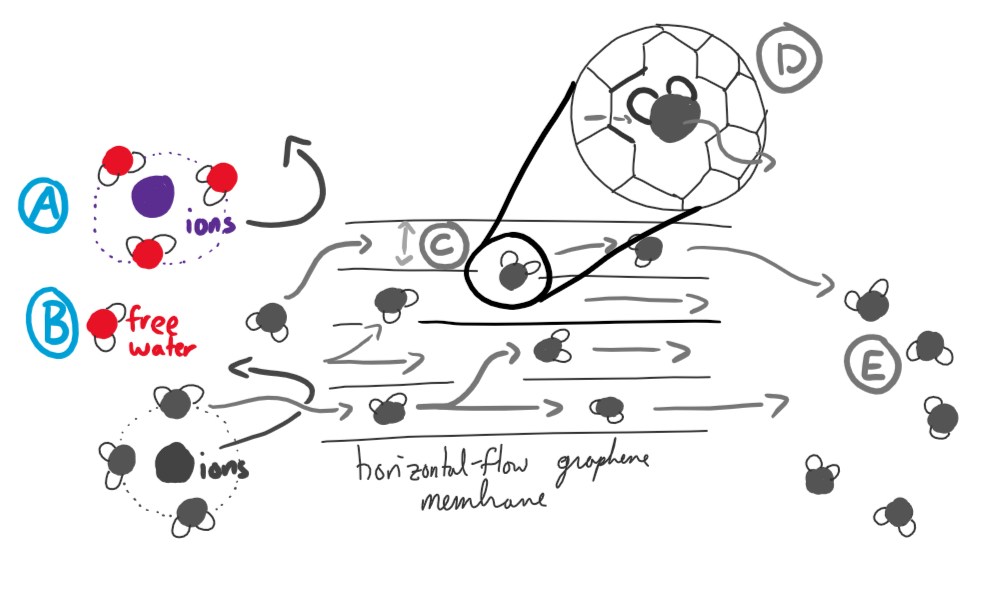 D
A
ions
C
B
free
water
E
ions
horizontal-flow graphene
membrane